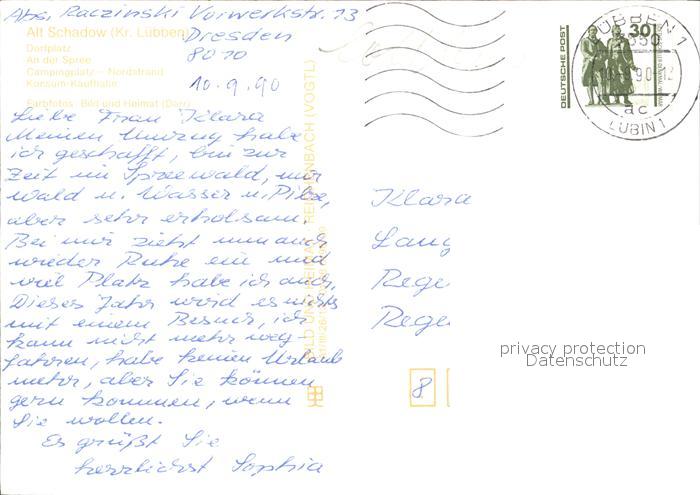 Abs. Raczinski Vorwerkstr. 13
Dresden
8010
10.9.90
Alt Schadow (Kr. Lübben)
Dorfplatz
An der Spree
Campingplatz – Nordstrand
Konsum-Kaufhalle
Farbfotos: Bild und Heimat (Darr)
Liebe Frau Klara
Meinen Umzug habe
ich geschafft, bin zur
Zeit im Spreewald, nur
Wald u. Wasser u. Pilze,
aber sehr erholsam.
Bei mir zieht nun auch
wieder Ruhe ein und
viel Platz habe ich auch.
Dieses Jahr wird es nichts
mit einem Besuch, ich
kann nicht mehr weg-
fahren, habe keinen Urlaub
mehr, aber Sie können
gern kommen, wenn
Sie wollen.
Es grüßt Sie
herzlichst Sophia
BILD UND HEIMAT REICHENBACH (VOGTL)
DEUTSCHE POST
30
LÜBBEN 1
LUBIN 1
ac
Klara
Lang
Rege
Rege
8
privacy protection
Datenschutz